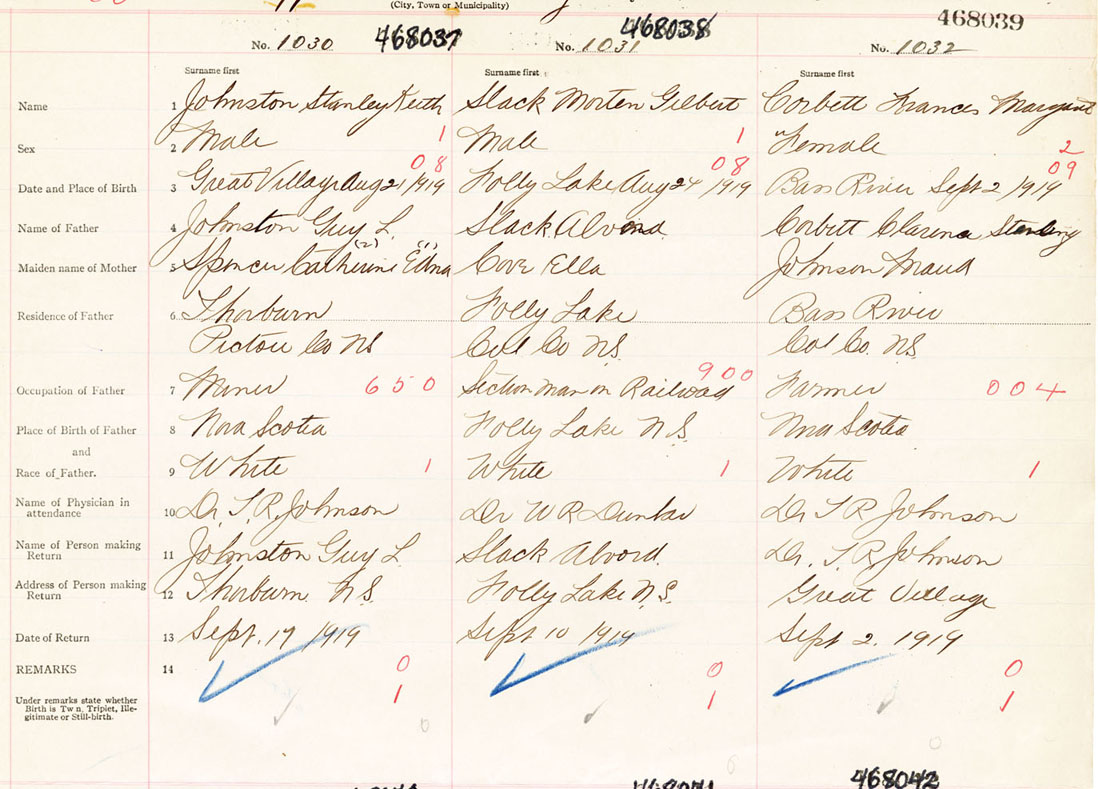 (City, Town or Municipality)
No. 1030 468037 No. 1031 468038 No. 1032 468039
Surname first Surname first Surname first
Name 1 Johnston Stanley Keith Slack Morten Gilbert Corbett Frances Margaret
Sex 2 Male 1 Male 1 Female 2
08 08 09
Date and Place of Birth 3 Great Village Aug 21/1919 Folly Lake Aug 24/1919 Bass River Sept 2/1919
Name of Father 4 Johnston Guy L. Slack Alvord Corbett Clarence Stanley
(2) (1)
Maiden name of Mother 5 Spencer Catherine Edna Cove Ella Johnson Maud
Residence of Father 6 Thorburn Folly Lake Bass River
Pictou Co NS Col Co NS. Col Co. NS
Occupation of Father 7 Miner 650 Section man on Railroad 900 Farmer 004
Place of Birth of Father 8 Nova Scotia Folly Lake N.S. Nova Scotia
and
Race of Father. 9 White 1 White 1 White 1
Name of Physician in
attendance 10 Dr. T. R. Johnson Dr W R Dunbar Dr T R Johnson
Name of Person making
Return 11 Johnston Guy L. Slack Alvord. Dr. T. R. Johnson
Address of Person making
Return 12 Thorburn. N.S. Folly Lake N.S. Great Village
Date of Return 13 Sept. 17 1919 Sept 10 1919 Sept 2. 1919
REMARKS 14 0 0 0
Under remarks state whether
Birth is Twin, Triplet, Ille-
gitimate or Still-birth. 1 1 1
0 0 0
468042